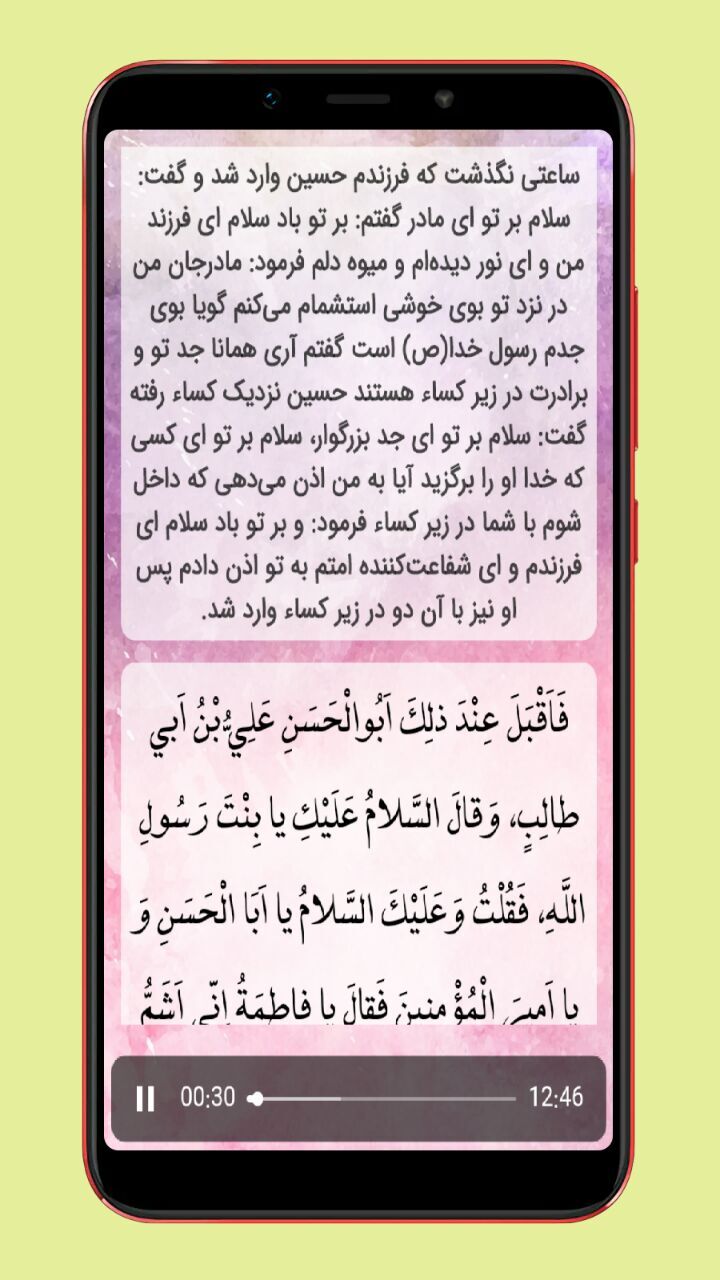 ساعتی نگذشت که فرزندم حسین وارد شد و گفت:
سلام بر تو ای مادر گفتم: بر تو باد سلام ای فرزند
من و ای نور دیده‌ام و میوه دلم فرمود: مادرجان من
در نزد تو بوی خوشی استشمام می‌کنم گویا بوی
جدم رسول خدا(ص) است گفتم آری همانا جد تو و
برادرت در زیر کساء هستند حسین نزدیک کساء رفته
گفت: سلام بر تو ای جد بزرگوار، سلام بر تو ای کسی
که خدا او را برگزید آیا به من اذن می‌دهی که داخل
شوم با شما در زیر کساء فرمود: و بر تو باد سلام ای
فرزندم و ای شفاعت‌کننده امتم به تو اذن دادم پس
او نیز با آن دو در زیر کساء وارد شد.
فَاَقْبَلَ عِنْدَ ذلِكَ اَبُوالْحَسَنِ عَلِيُّ بْنُ اَبي
طالِبٍ، وَقالَ السَّلامُ عَلَيْكِ يا بِنْتَ رَسُولِ
اللَّهِ، فَقُلْتُ وَعَلَيْكَ السَّلامُ يا اَبَا الْحَسَنِ وَ
يا اَميرَ الْمُؤْمِنينَ فَقالَ يا فاطِمَةُ اِنّي اَشَمُّ
00:30 12:46